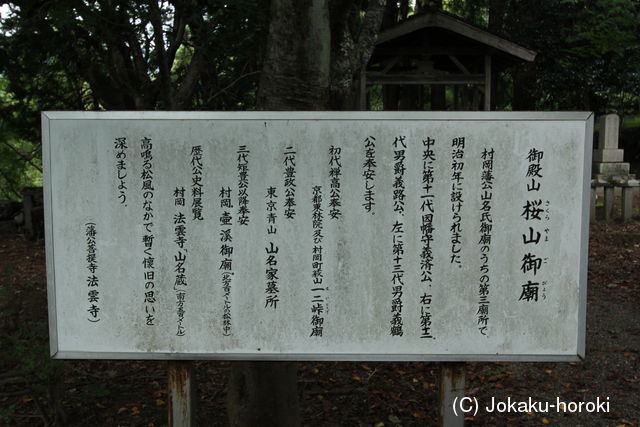 御殿山 桜山御廟
さくら やま ご びょう
村岡藩公山名氏御廟のうちの第三廟所で
明治初年に設けられました。
中央に第十一代因幡守義済公、右に第十二
代男爵義路公、左に第十三代男爵義鶴
公を奉安します。
初代禅高公奉安
京都東林院及び村岡町萩山一二峠御廟
二代豊政公奉安
東京青山 山名家墓所
三代矩豊公以降奉安
村岡、壷溪御廟
歴代公史料展覧
村岡 法雲寺「山名蔵」
高鳴る松風のなかで暫く懐旧の思いを
深めましょう。
(藩公菩提寺 法雲寺)
(C) Jokaku-horoki